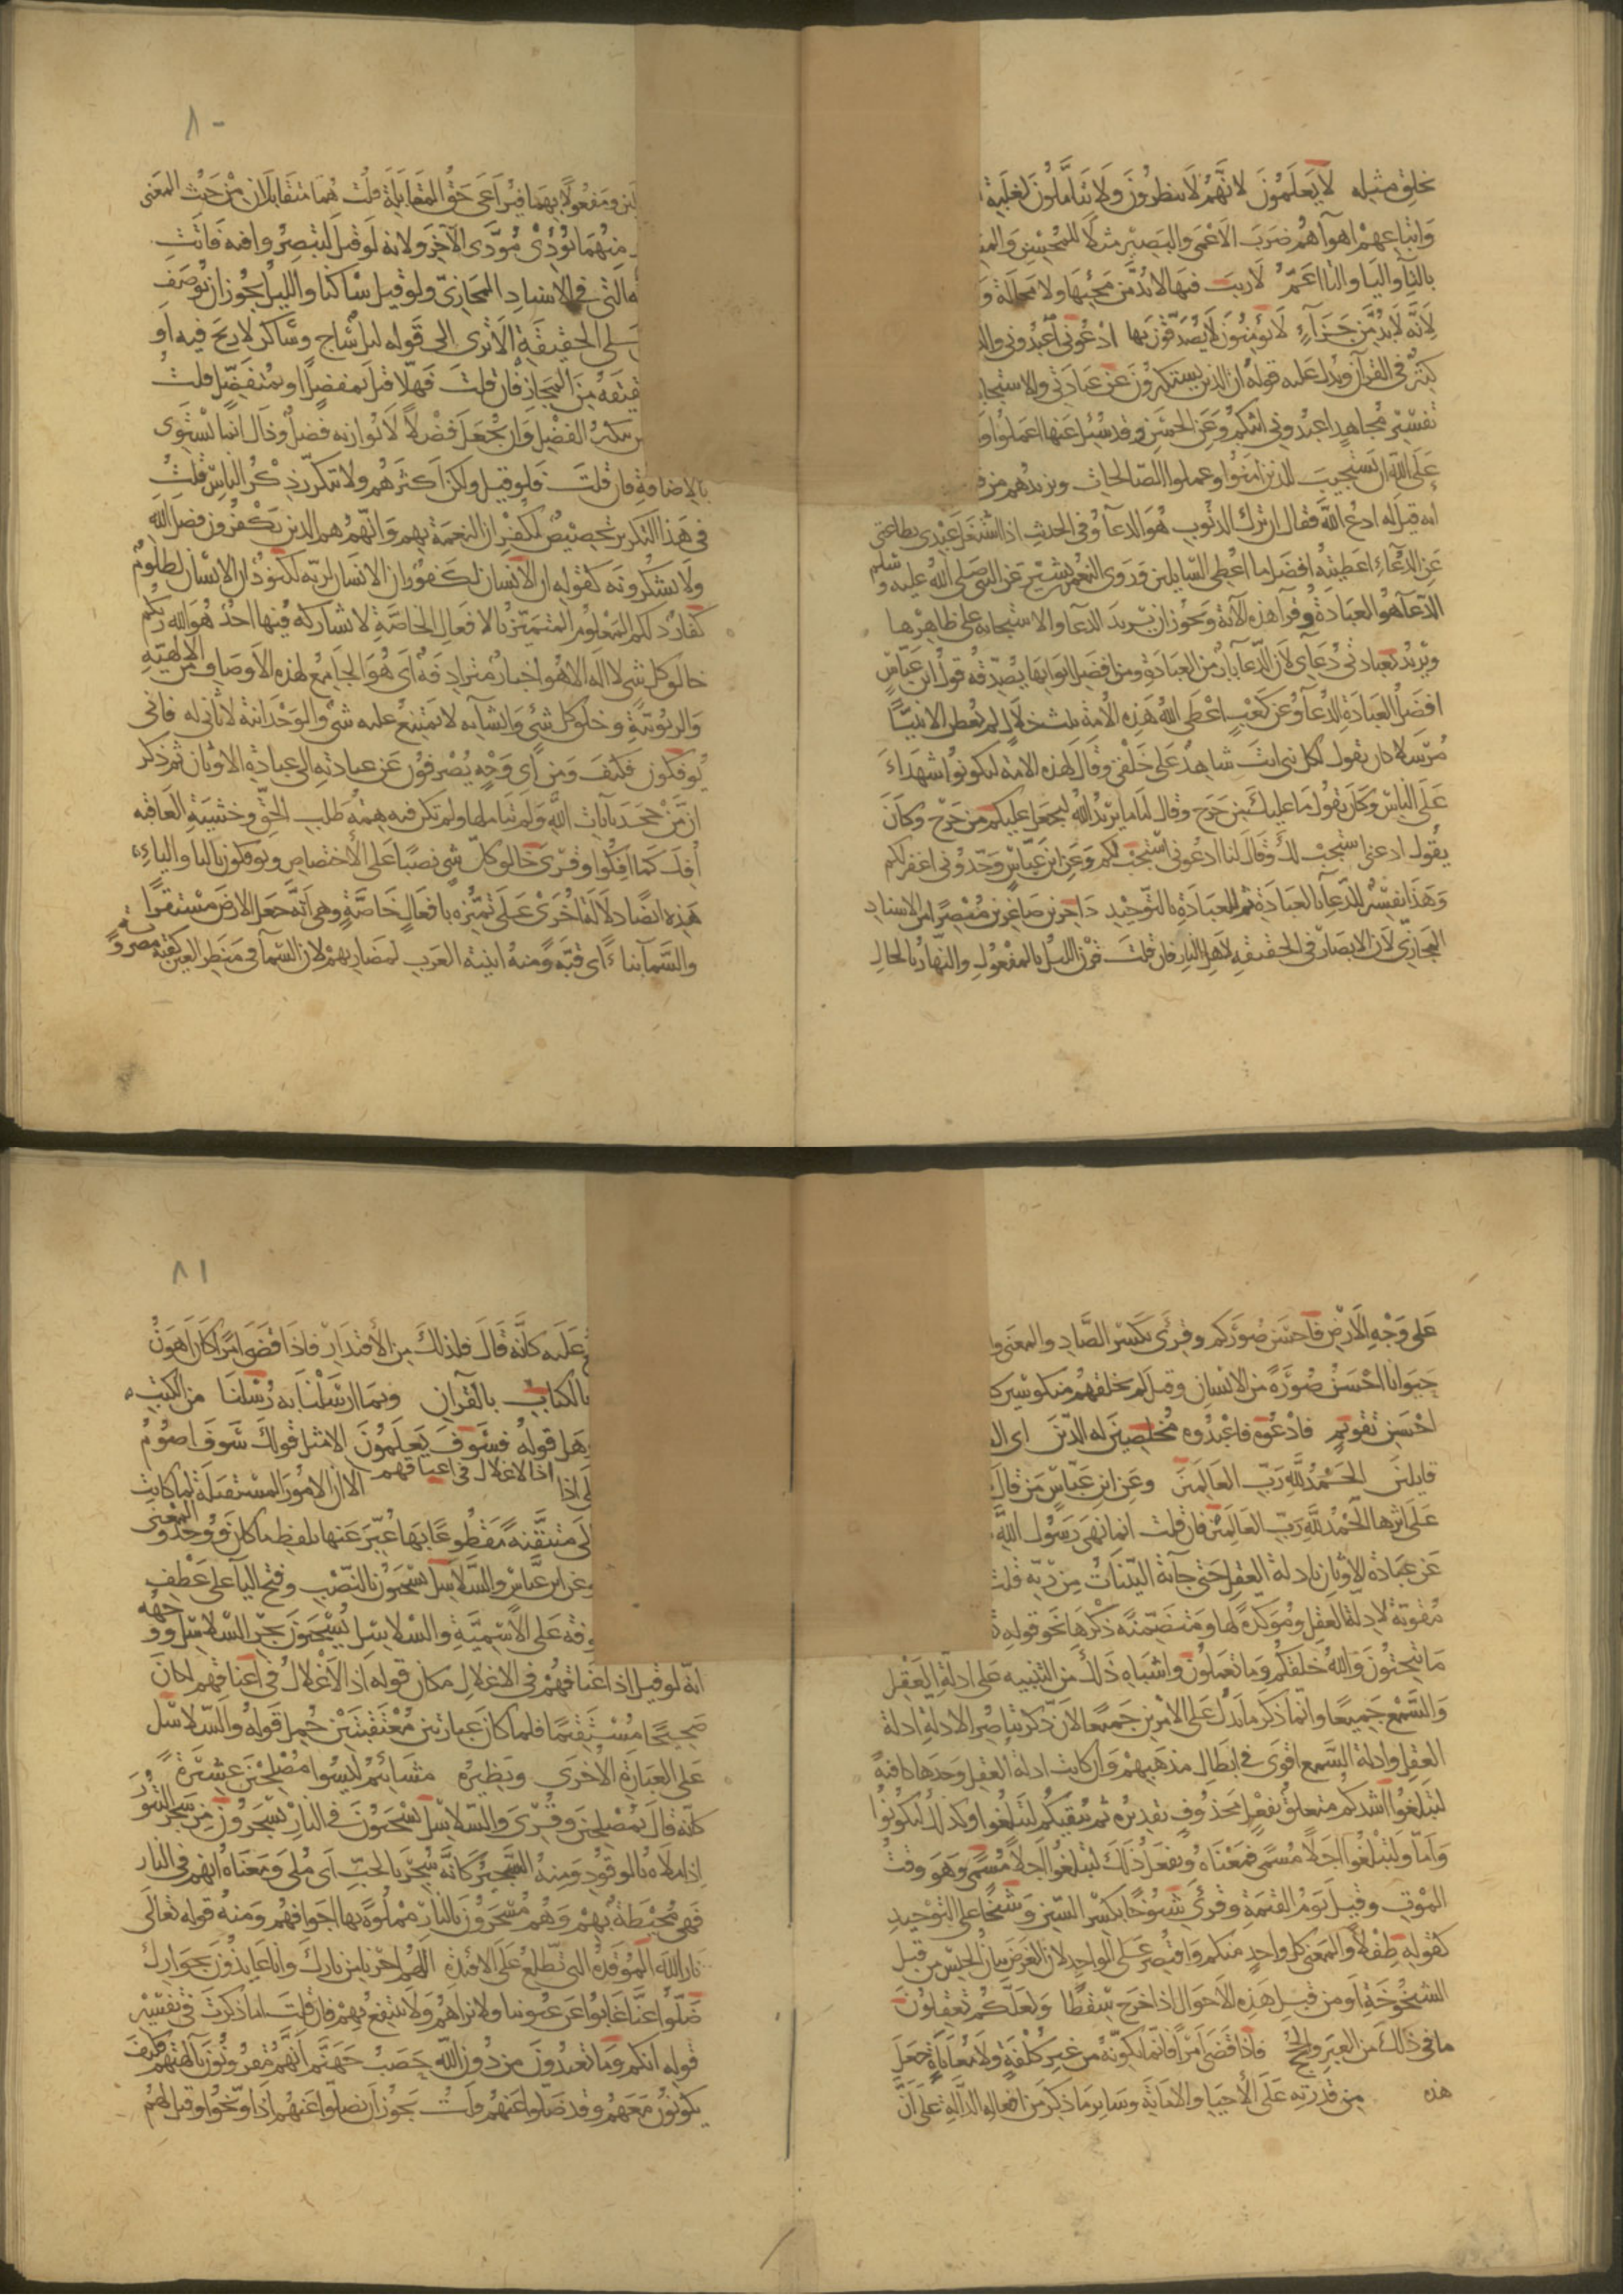 بخلق مثله لا يعلمون لانهم لا ينظرون ولا يتاملون لغلبة
واتباعهم اهوآهم ضرب الاعمى والبصير مثلا للمحسن والمسـ
بالتآ واليا والتا اعمّ لاريب فيها لا بدّ من مجيها ولا محالة و
لانه لا بدّ من جزآء لا يؤمنون لا يصدّقون بها ادعوني اعبدوني والد
كثر في القرآن ويدل عليه قوله ان الذين يستكبرون عن عبادتي والاستجا
تفسير مجاهد اعبدوني اثبكم وعن الحسن وقد سئل عنها اعملوا وا
على الله ان يستجيب للذين امنوا وعملوا الصالحات ويزيدهم من ف
انه قيل له ادع الله فقال ان ترك الذنوب هو الدعآ وفي الحديث اذا شغل عبدى بطاعتى
عن الدعآء اعطيته افضل ما اعطى السايلين وروى النعمن بشير عن النبي صلى الله عليه وسلم
الدعآ هو العبادة وقرآ هذه الآية ويجوز ان يريد الدعآ والاستجابة على ظاهرها
ويريد بعبادتي دعآى لان الدعآ باب من العبادة ومن افضل ابوابها يصدقه قول ابن عباس
افضل العبادة الدعآ وعن كعب اعطى الله هذه الامة ثلث خلال لم يعطهن الا نبيّا
مرسلا كان يقول لكل نبى انت شاهد على خلقى وقال لهذه الامة لتكونوا شهدآء
على الناس وكان يقول ما عليك من حرج وقال لنا ما يريد الله ليجعل عليكم من حرج وكان
يقول ادعنى استجب لك وقال لنا ادعونى استجب لكم وعن ابن عباس وحدونى اغفر لكم
وهذا تفسير للدعآ بالعبادة ثم للعبادة بالتوحيد داخرين صاغرين مبصرا من الاسناد
المجازي لان الابصار في الحقيقة لاهل النهار فان قلت قرن الليل بالمفعول والنهار بالحال
٨٠
لين ومفعولا بهما فيراعى حق المقابلة قلت هما متقابلان من حيث المعنى
منهما يؤدى مؤدى الآخر ولانه لو قيل لتبصروا فيه فاتت
ـه التي في الاسناد المجازيّ ولو قيل ساكنا والليل يجوز ان يوصف
على الحقيقة الا ترى الى قوله ليل ساج وساكن لا ريح فيه او
قيقة من المجاز فان قلت فهلا قيل لمفضل او لمتفضل قلت
تنكير الفضل وان يجعل فضلا لا يوازنه فضل وذاك انما يستوى
بالاضافة فان قلت فلو قيل ولكن اكثرهم ولا يتكرر ذكر الناس قلت
في هذا التكرير تخصيص لكفران النعمة بهم وانهم هم الذين يكفرون فضل الله
ولا يشكرونه كقوله ان الانسان لكفور ان الانسان لربه لكنود ان الانسان لظلوم
كفار ذلكم المعلوم المتميز بالافعال الخاصة لا يشاركه فيها احد هو الله ربكم
خالق كل شى لا اله الا هو اخبار مترادفة اى هو الجامع لهذه الاوصاف من الالهية
والربوبية وخلق كل شي وانشآيه لا يمتنع عليه شي والوحدانية لا ثاني له فانى
تؤفكون فكيف ومن اى وجه يصرفون عن عبادته الى عبادة الاوثان ثم ذكر
ان من جحد بآيات الله ولم يتاملها ولم تكن فيه همة طلب الحق وخشية العاقبه
افك كما افكوا وقرى خالق كل شي نصبا على الاختصاص ويوفكون بالتا والياء
هذه ايضا دلالة اخرى على تميزه بافعال خاصة وهي انه جعل الارض مستقرا
والسمآ بنآء اى قبه ومنه ابنية العرب لمضاربهم لان السمآ في منظر العين كقبة مضروبة
على وجه الارض فاحسن صوركم وقرئ بكسر الصاد والمعنى وا
حيوانا احسن صورة من الانسان وقيل لم يخلقهم منكوسين كـ
احسن تقويم فادعوه فاعبدوه مخلصين له الدين اى الـ
قايلين الحمد لله رب العالمين وعن ابن عباس من قال
على اثرها الحمد لله رب العالمين فان قلت انما نهى رسول الله
عن عبادة الاوثان بادلة العقل حتى جآته البينات من ربه قلت
مقوية لادلة العقل ومؤكدة لها ومتضمنة ذكرها نحو قوله
ما تنحتون والله خلقكم وما تعملون واشباه ذلك من التنبيه على ادلة العقل
والسمع جميعا وانما ذكر ما يدل على الامرين جميعا لان ذكر تناصر الادلة ادلة
العقل وادلة السمع اقوى في ابطال مذهبهم وان كانت ادلة العقل وحدها كافية
لتبلغوا اشدكم متعلق بفعل محذوف تقديره ثم يبقيكم لتبلغوا وكذلك لتكونوا
واما ولتبلغوا اجلا مسمى فمعناه ونفعل ذلك لتبلغوا اجلا مسمى وهو وقت
الموت وقيل يوم القيمة وقرئ شيوخا بكسر الشين وشيخا على التوحيد
كقوله طفلا والمعنى كل واحد منكم واقتصر على الواحد لان الغرض بيان الجنس من قبل
الشيخوخة او من قبل هذه الاحوال اذا خرج سقطا ولعلكم تعقلون
ما في ذلك من العبر والحجج فاذا قضى امرا فانما يكونه من غير كلفة ولا معاناة جعل
هذه من قدرته على الاحيا والاماتة وساير ما ذكر من افعاله الدالة على ان
٨١
عليه كانه قال فلذلك من الاقتدار فاذا قضى امرا كان اهون
بالكتاب بالقرآن وبما ارسلنا به رسلنا من الكتب
وهل قوله فسوف يعلمون الا مثل قولك سوف اصوم
لى اذا اذا الاغلال في اعناقهم الا ان الامور المستقبلة لما كانت
لى متيقنة مقطوعا بها عبر عنها بلفظ ما كان ووجد والمعنى
وعن ابن عباس والسلاسل يسحبون بالنصب وفتح اليا على عطف
وفه على الاسمية والسلاسل يسحبون بجر السلاسل ووجهه
انه لو قيل اذ اعناقهم في الاغلال مكان قوله اذ الاغلال في اعناقهم لكان
صحيحا مستقيما فلما كان عبارتين معتقبتين حمل قوله والسلاسل
على العبارة الاخرى ونظيره مشائيم ليسوا مصلحين عشيرة
كانه قال بمصلحين وقرى وبالسلاسل يسحبون في النار يسجرون من سجر التنور
اذا ملاه بالوقود ومنه السجير كانه سجر بالحب اى ملى ومعناه انهم في النار
فهي محيطة بهم وهم مسجرون بالنار مملوة بها اجوافهم ومنه قوله تعالى
نار الله الموقدة التي تطلع على الافئدة اللهم اجرنا من نارك وانا عايذون بجوارك
ضلوا عنا غابوا عن عيوننا ولا نراهم ولا ننتفع بهم فان قلت اما ذكرت في تفسير
قوله انكم وما تعبدون من دون الله حصب جهنم انهم مقرونون بآلهتهم فكيف
يكونون معهم وقد ضلوا عنهم قلت يجوز ان يضلوا عنهم اذا وبخوا وقيل لهم